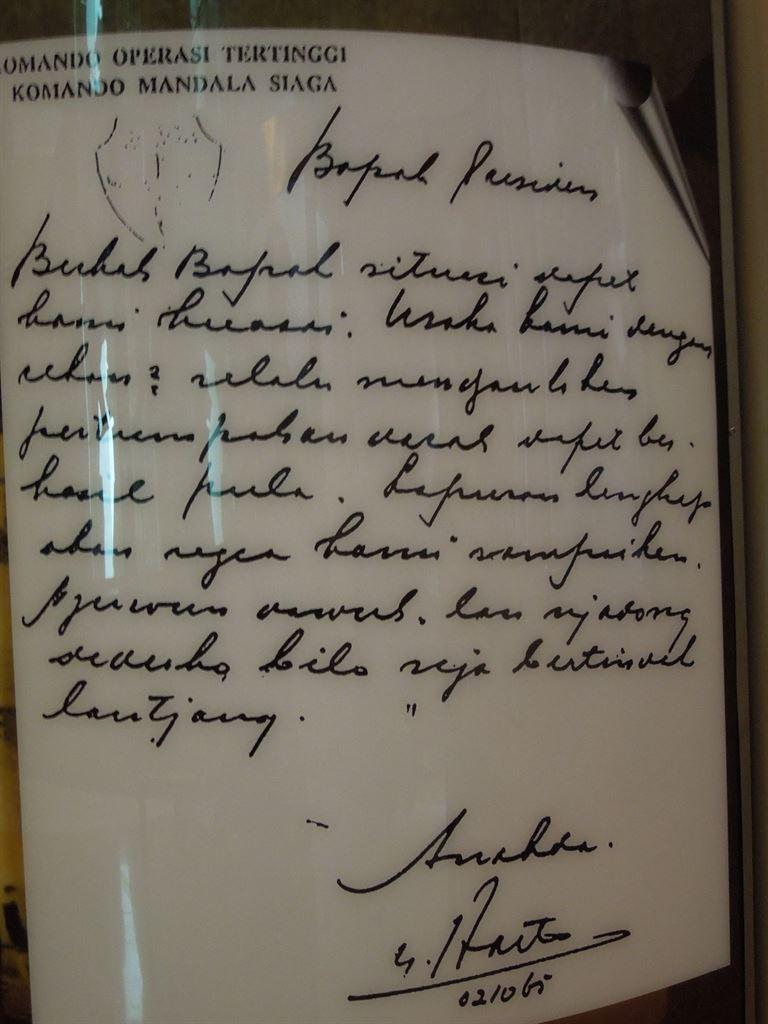 KOMANDO OPERASI TERTINGGI
KOMANDO MANDALA SIAGA
Bapak Presiden
Berkat Bapak situasi dapat
kami kuasai. Usaha kami dengan
rekan2 selalu mengautkken
pertumpahan darah dapat ber-
hasil pula. Lapuran lengkap
akan segra kami sampaiken.
Njuwun dawuh. lan njadong
deduko bilo saja bertindak
lantjang. "
Ananda.
S. Harto
021065